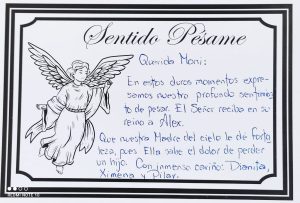 Sentido Pésame
Querida Moni:
En estos duros momentos expre-
samos nuestro profundo sentimien
to de pesar. El Señor reciba en su
reino a Alex.
Que nuestra Madre del cielo le de forta
leza, pues Ella sabe el dolor de perder
un hijo. Con inmenso cariño: Dianita,
Ximena y Pilar.